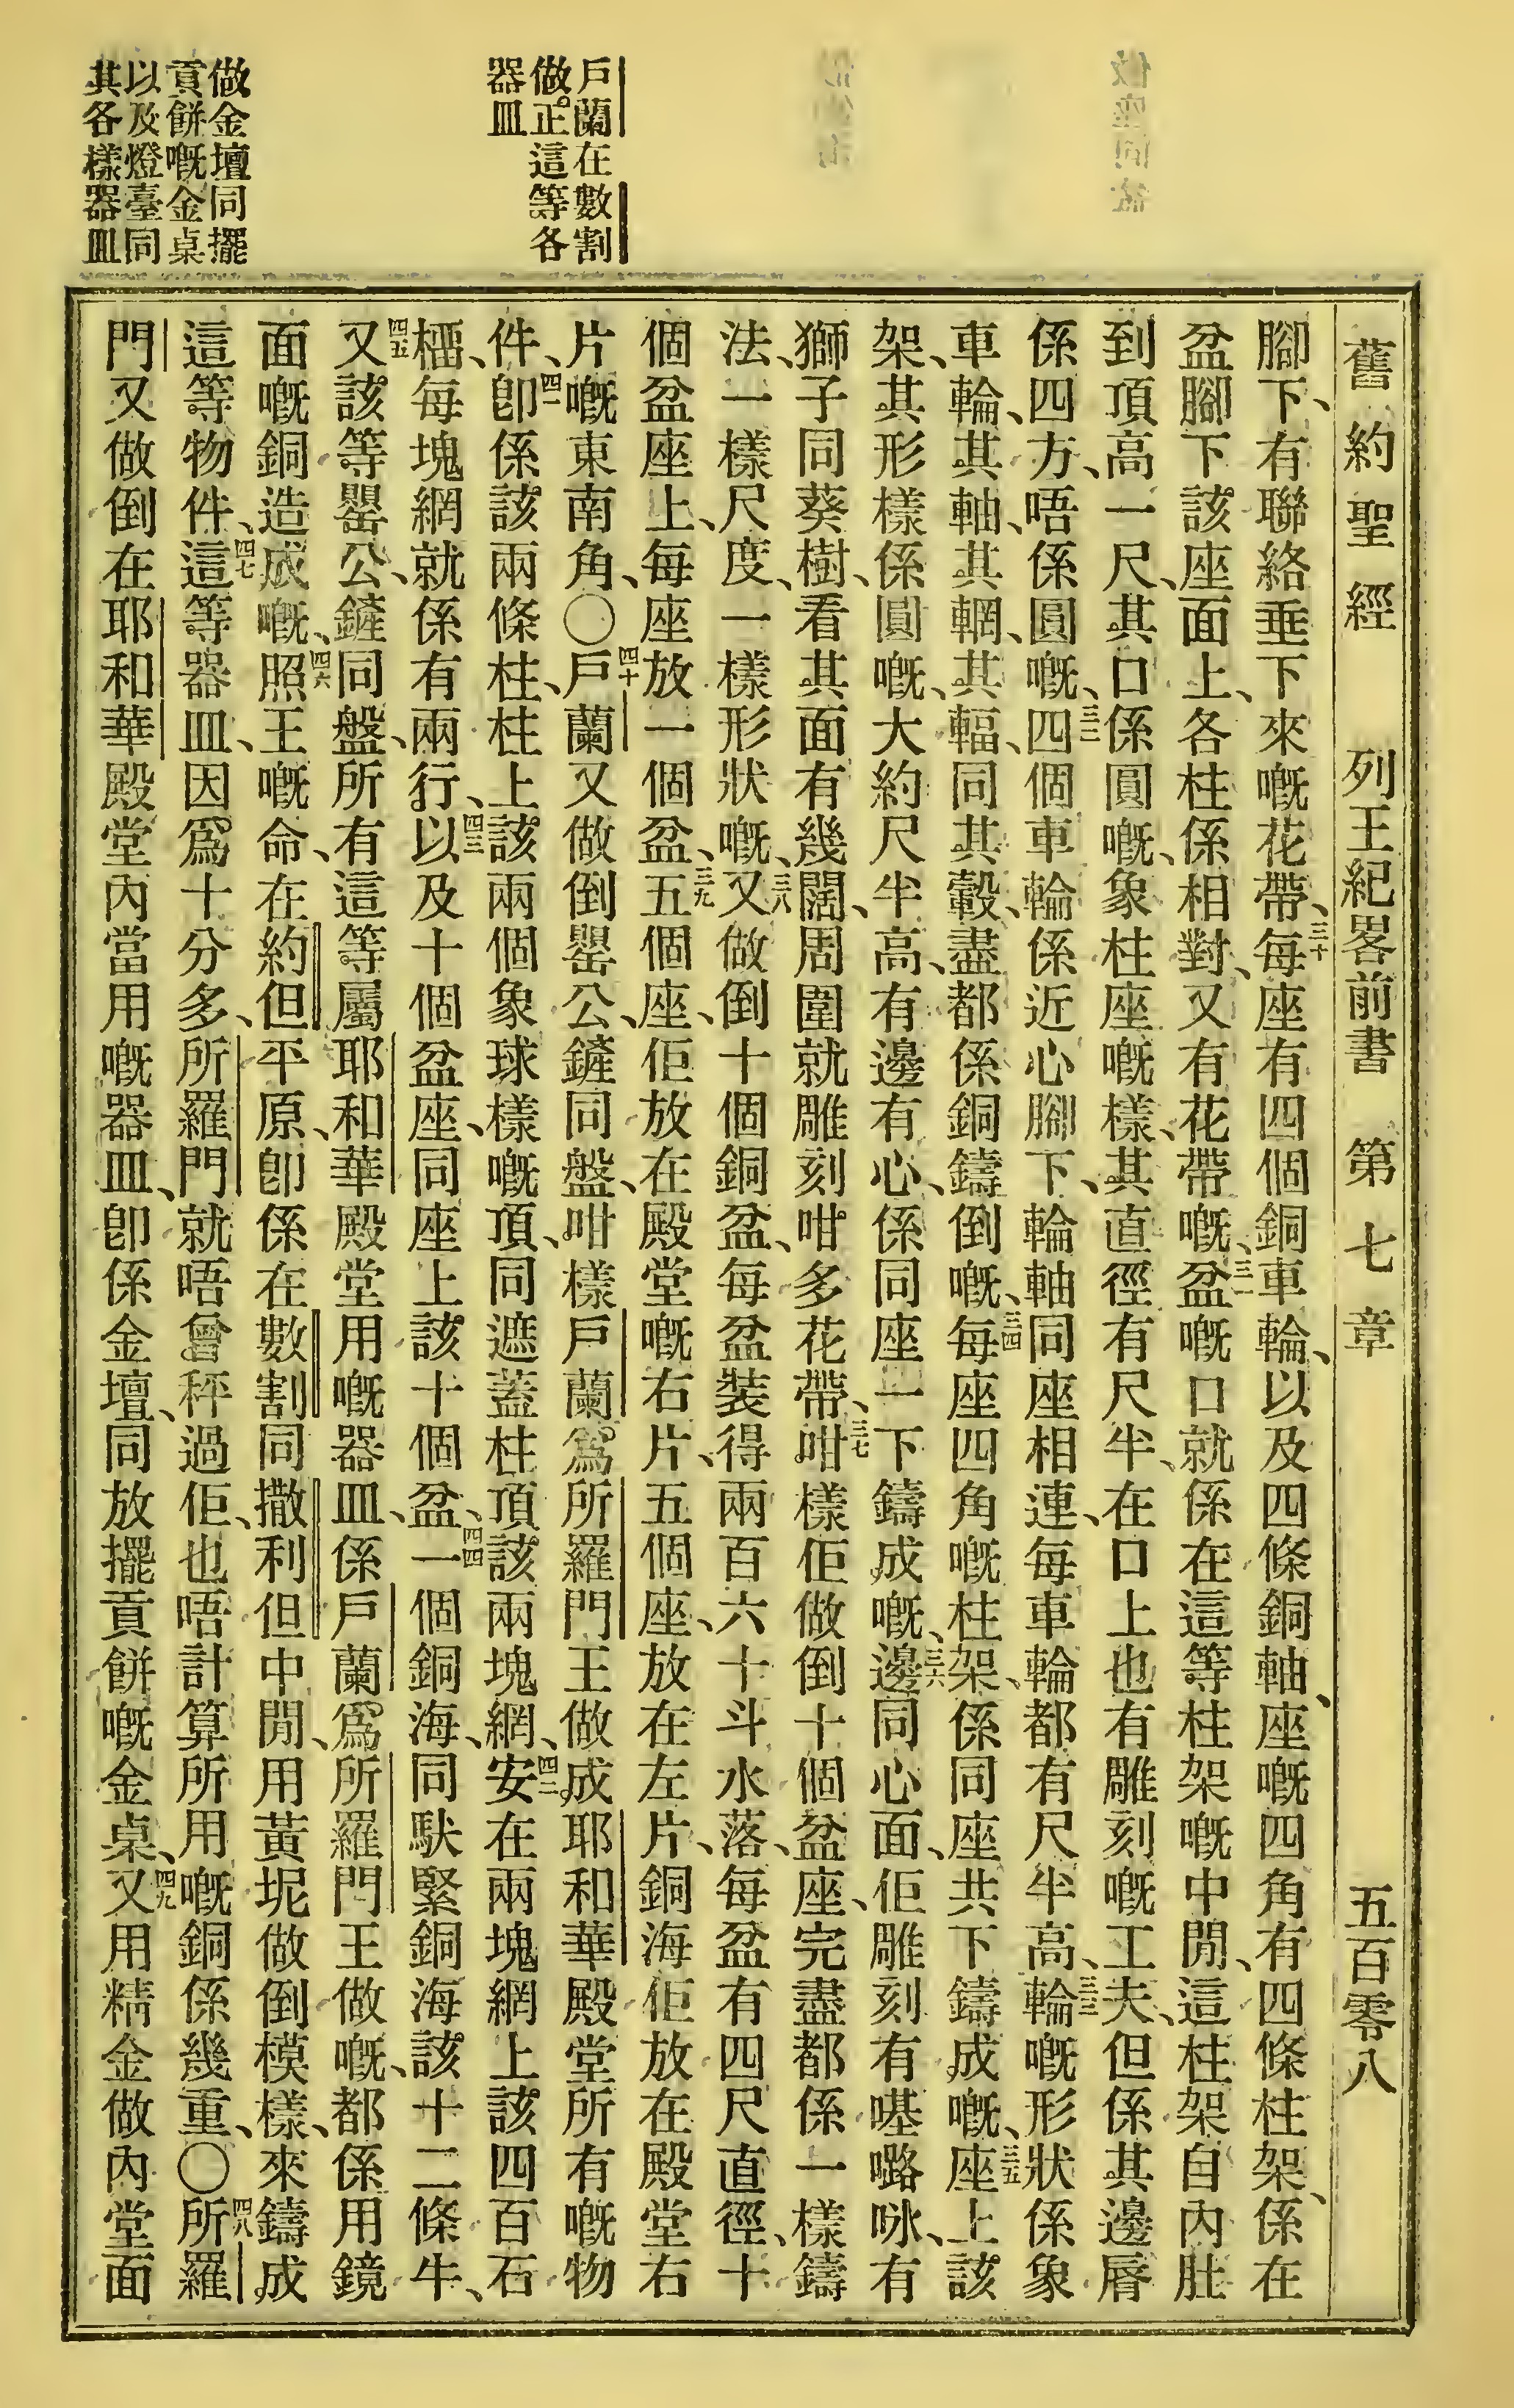 舊約聖經 列王紀畧前書 第七章 五百零八
戶蘭在數割
做正這等各
器皿
做金壇同擺
貢餅嘅金桌
以及燈臺同
其各樣器皿
腳下、有聯絡垂下來嘅花帶、三十每座有四個銅車輪、以及四條銅軸、座嘅四角有四條柱架、係在
盆腳下該座面上、各柱係相對、又有花帶嘅、三一盆嘅口就係在這等柱架嘅中閒、這柱架自內肚
到頂高一尺、其口係圓嘅、象柱座嘅樣、其直徑有尺半、在口上也有雕刻嘅工夫、但係其邊唇
係四方、唔係圓嘅、三二四個車輪係近心腳下、輪軸同座相連、每車輪都有尺半高、三三輪嘅形狀係象
車輪、其軸、其輞、其輻、同其轂、盡都係銅鑄倒嘅、三四每座四角嘅柱架、係同座共下鑄成嘅、三五座上該
架、其形樣係圓嘅、大約尺半高、有邊有心、係同座一下鑄成嘅、三六邊同心面、佢雕刻有𠼻𡀔咏、有
獅子同葵樹、看其面有幾闊、周圍就雕刻咁多花帶、三七咁樣佢做倒十個盆座、完盡都係一樣鑄
法、一樣尺度、一樣形狀嘅、三八又做倒十個銅盆、每盆裝得兩百六十斗水落、每盆有四尺直徑、十
個盆座上、每座放一個盆、三九五個座、佢放在殿堂嘅右片、五個座、放在左片、銅海佢放在殿堂右
片嘅東南角、〇四十戶蘭又做倒罌公、鏟同盤、咁樣戶蘭爲所羅門王做成耶和華殿堂所有嘅物
件、四一卽係該兩條柱、柱上該兩個象球樣嘅頂、同遮蓋柱頂該兩塊網、四二安在兩塊網上該四百石
榴、每塊網就係有兩行、四三以及十個盆座、同座上該十個盆、四四一個銅海、同馱緊銅海該十二條牛、
四五又該等罌公、鏟同盤、所有這等屬耶和華殿堂用嘅器皿、係戶蘭爲所羅門王做嘅、都係用鏡
面嘅銅造成嘅、四六照王嘅命、在約但平原、卽係在數割同撒利但中閒、用黃坭做倒模樣、來鑄成
這等物件、四七這等器皿、因爲十分多、所羅門就唔曾秤過佢、也唔計算所用嘅銅係幾重、〇四八所羅
門又做倒在耶和華殿堂內當用嘅器皿、卽係金壇、同放擺貢餅嘅金桌、四九又用精金做內堂面